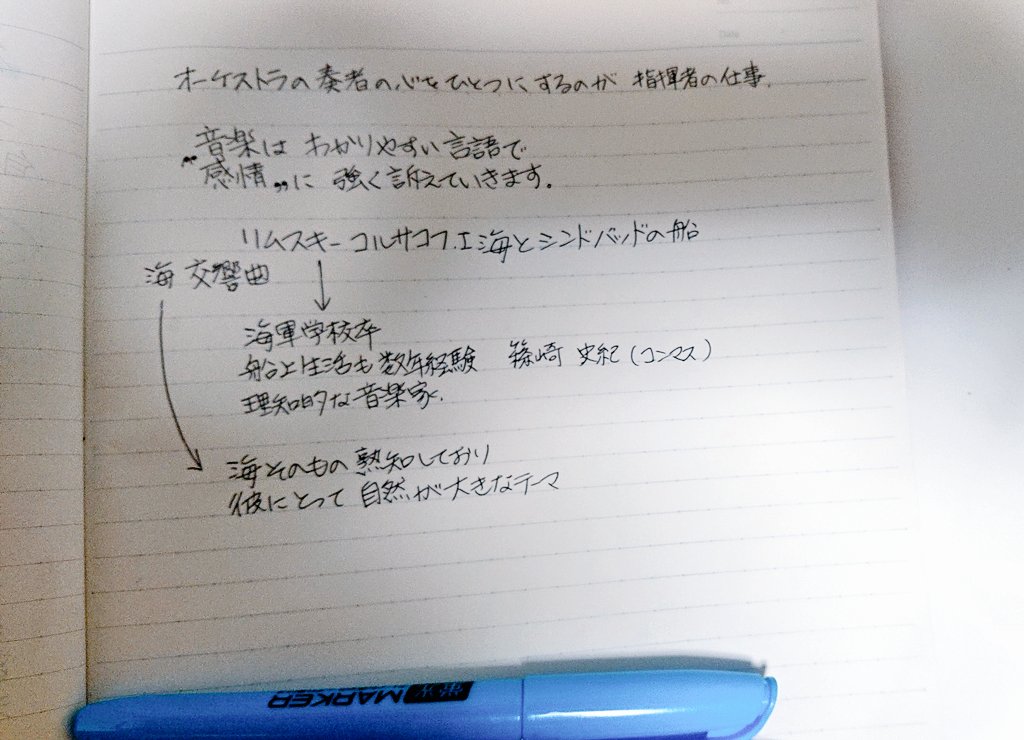 オーケストラの奏者の心をひとつにするのが 指揮者の仕事.
音楽は わかりやすい言語で
"感情"に 強く訴えていきます.
リムスキーコルサコフ.I 海とシンドバッドの船
海 交響曲
海軍学校卒
船上生活も数年経験 篠崎 史紀(コンマス)
理知的な音楽家.
海そのもの 熟知しており
彼にとって 自然が大きなテーマ
蛍光 MARKER